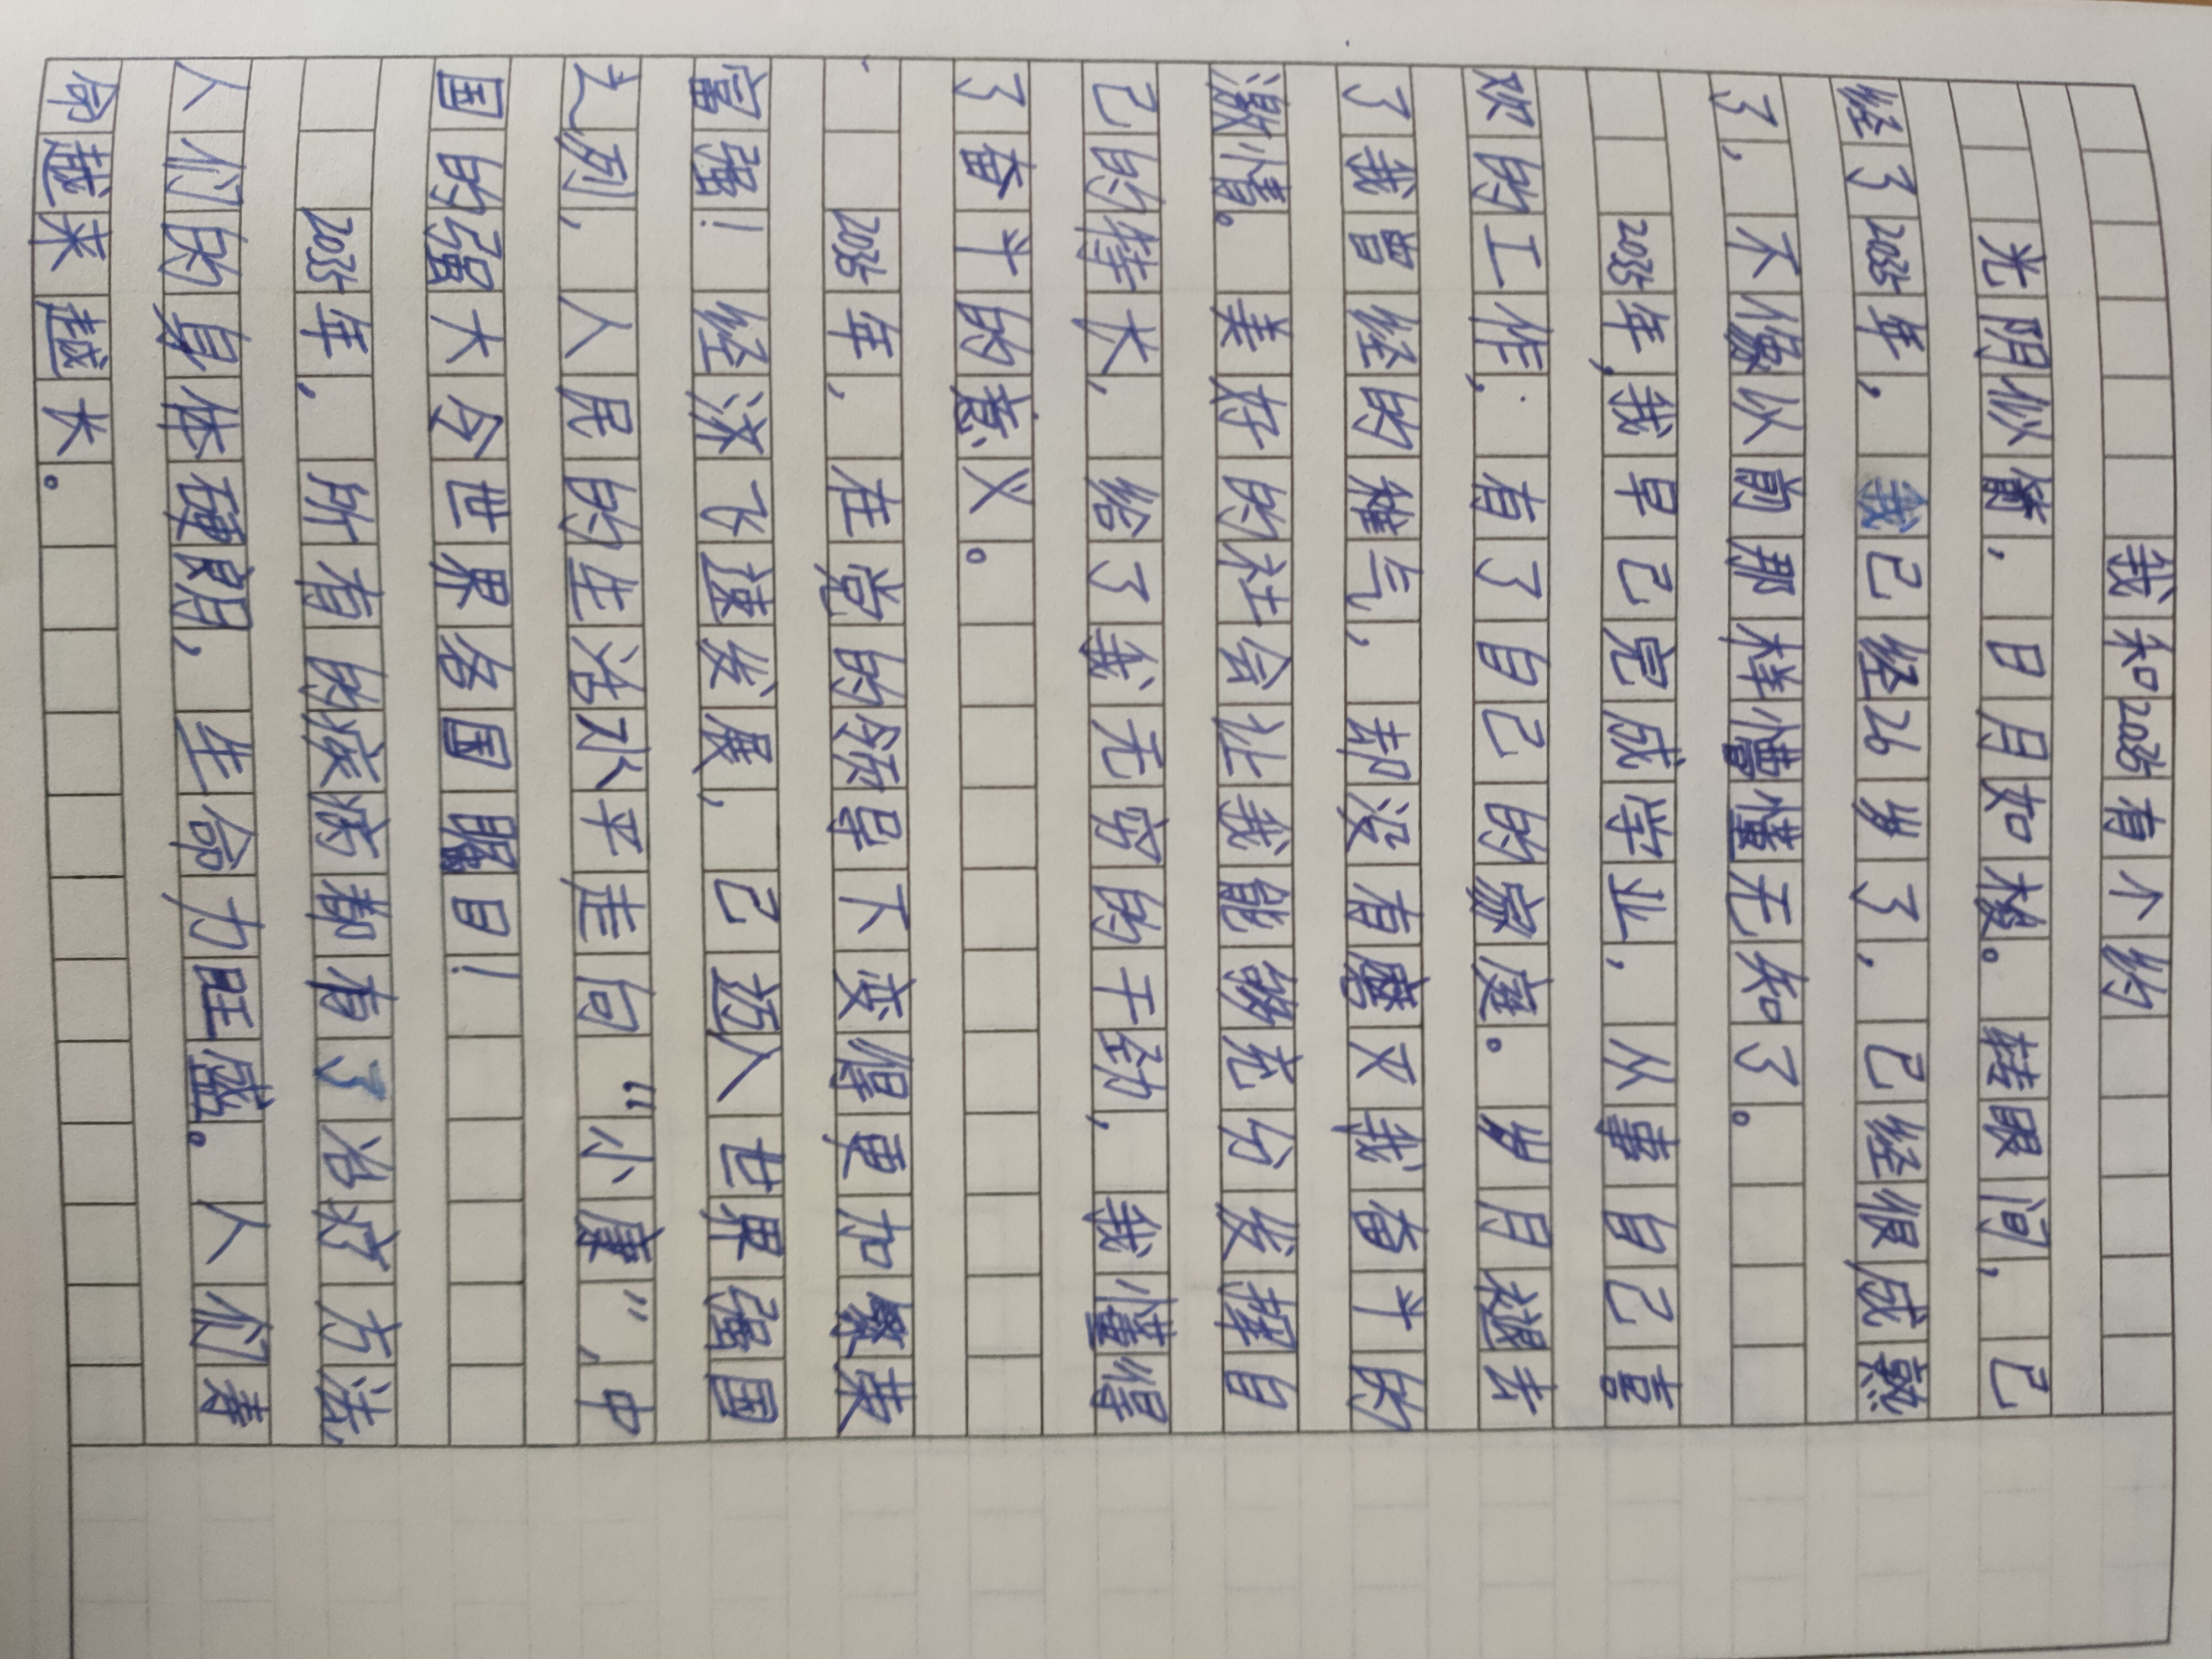 我和2035有个约
光阴似箭，日月如梭。转眼间，已
经了2035年，我已经26岁了，已经很成熟
了，不像以前那样懵懂无知了。
2035年，我早已完成学业，从事自己喜
欢的工作，有了自己的家庭。岁月褪去
了我曾经的稚气，却没有磨灭我奋斗的
激情。美好的社会让我能够充分发挥自
己的特长，给了我无穷的干劲，我懂得
了奋斗的意义。
2035年，在党的领导下变得更加繁荣
富强！经济飞速发展，已迈入世界强国
之列，人民的生活水平走向“小康”，中
国的强大令世界各国瞩目！
2035年，所有的疾病都有了治疗方法，
人们的身体硬朗，生命力旺盛。人们寿
命越来越长。